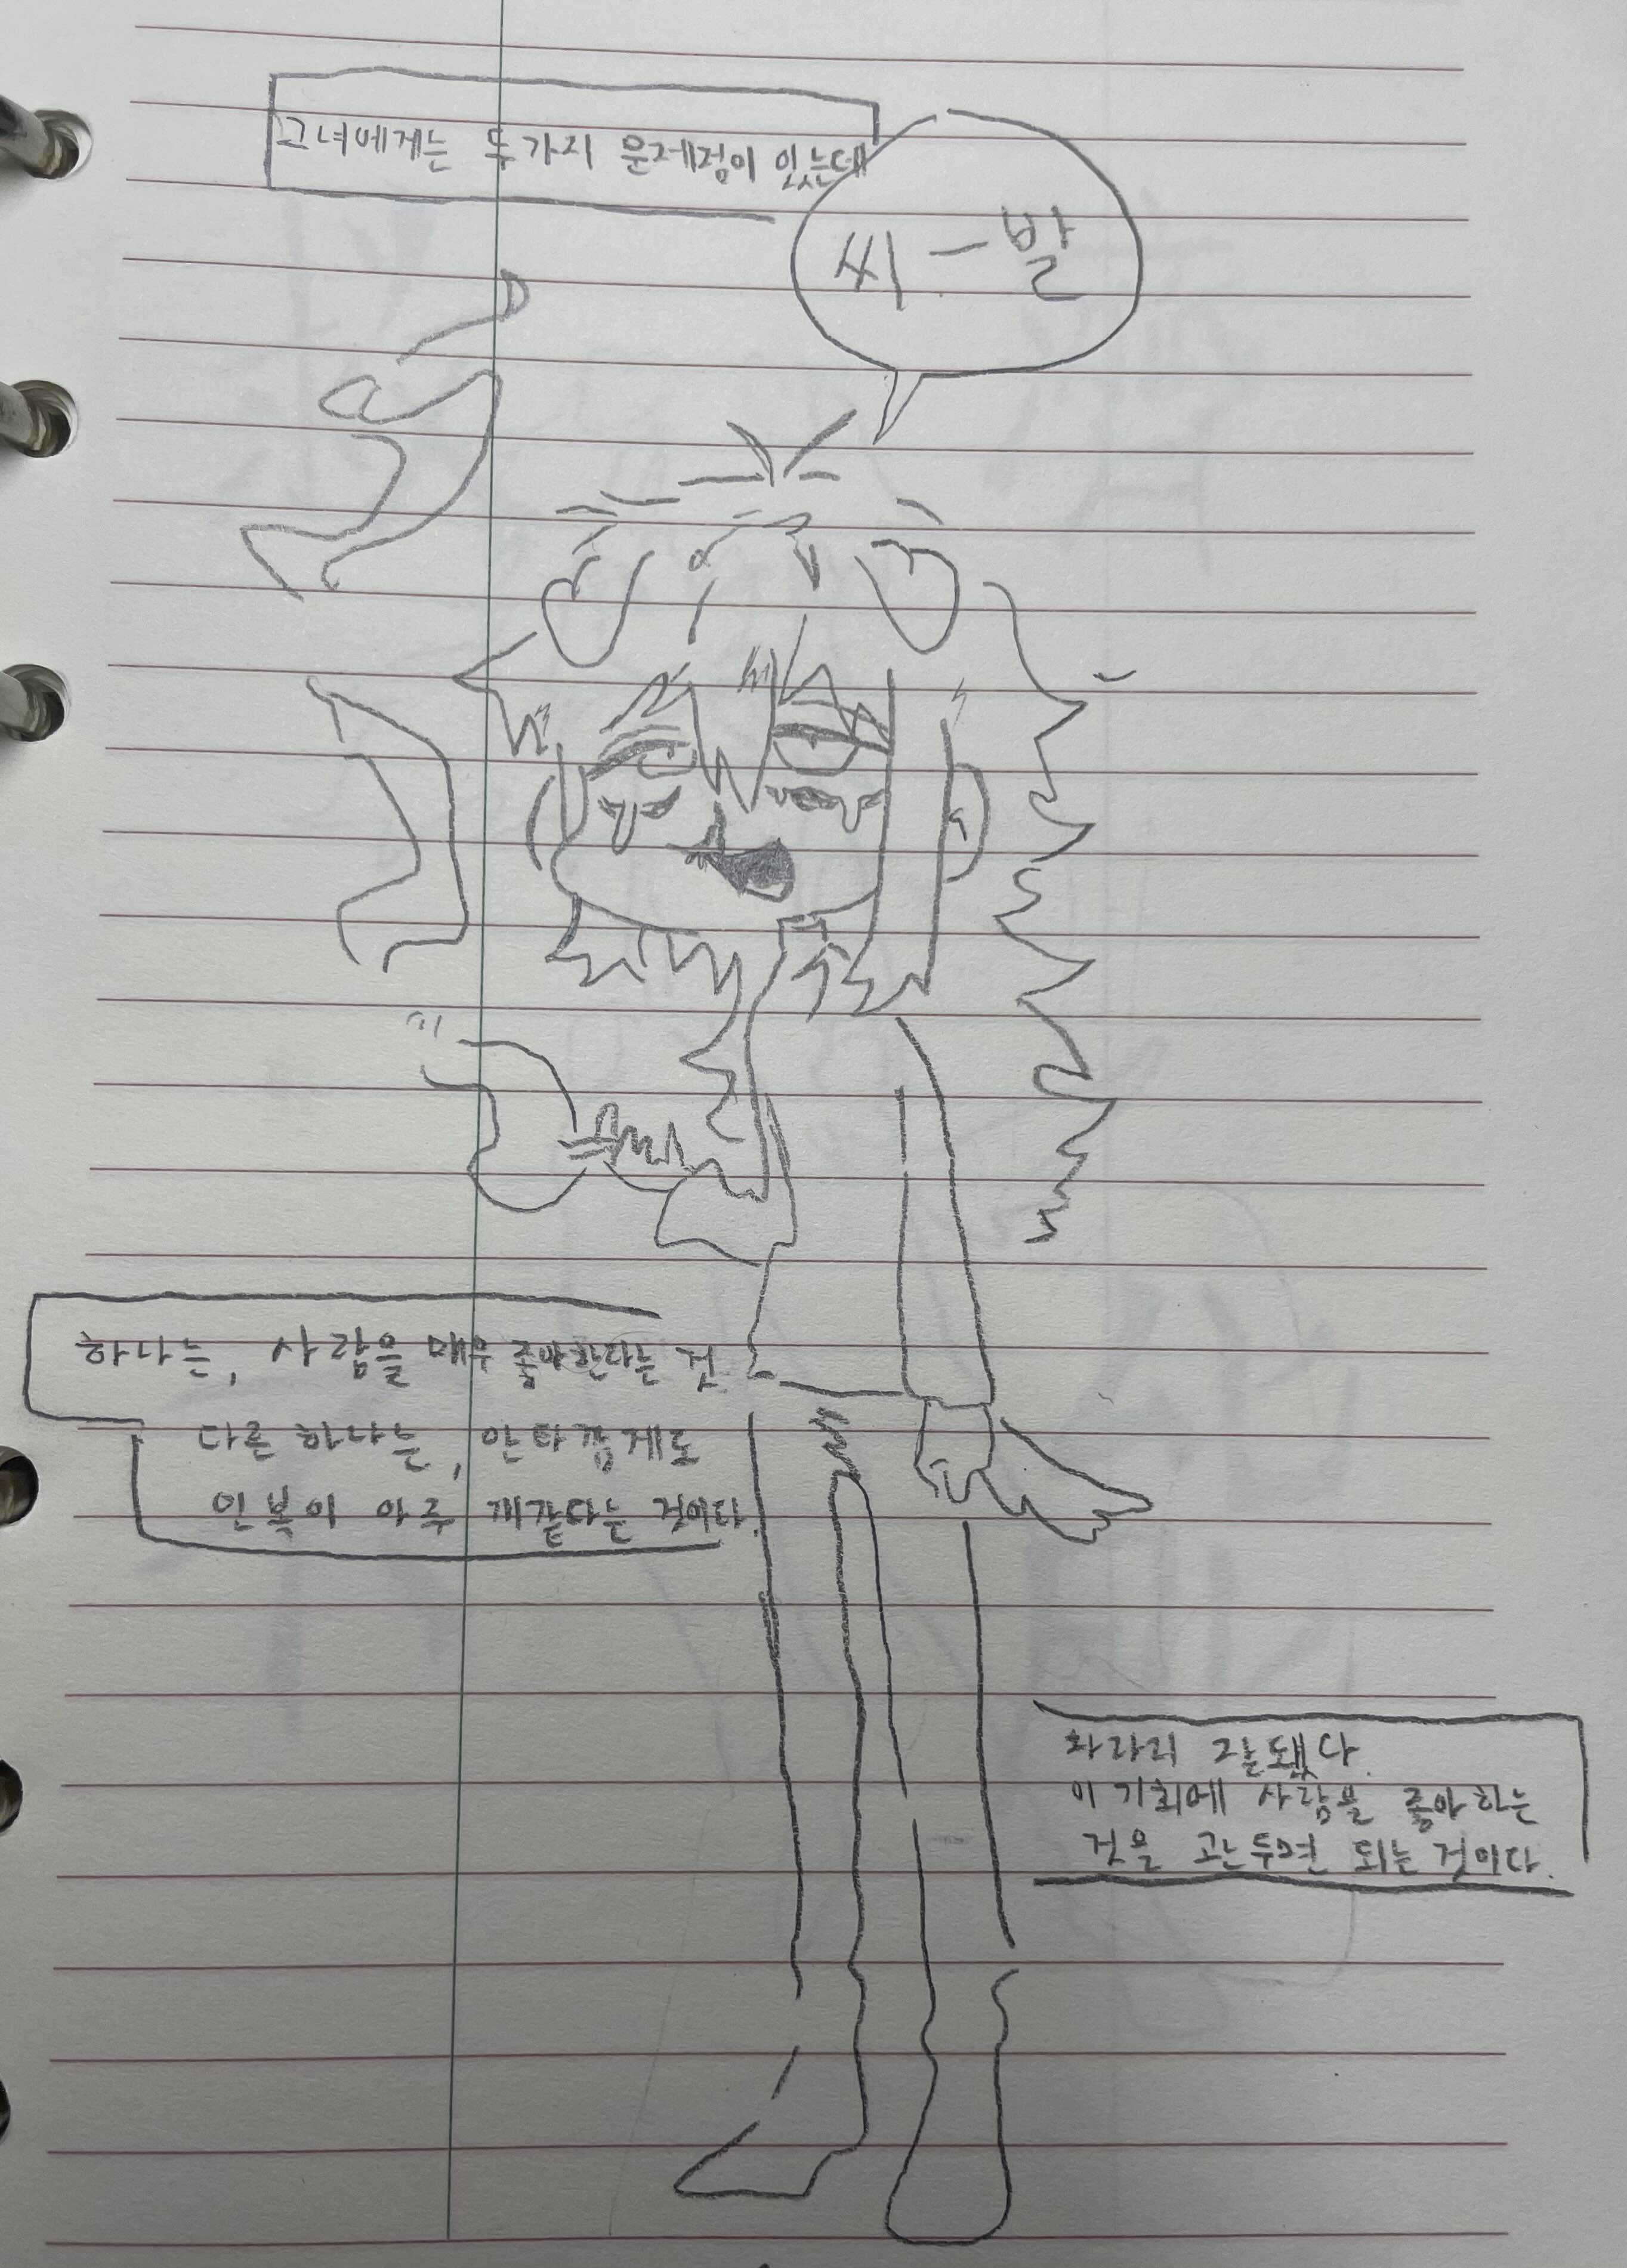 그녀에게는 두가지 문제점이 있는데
씨-발
하나는, 사람을 매우 좋아한다는 것
다른 하나는, 안타깝게도
인복이 아주 개같다는 것이다.
차라리 잘됐다.
이 기회에 사람을 좋아하는
것을 관두면 되는 것이다.